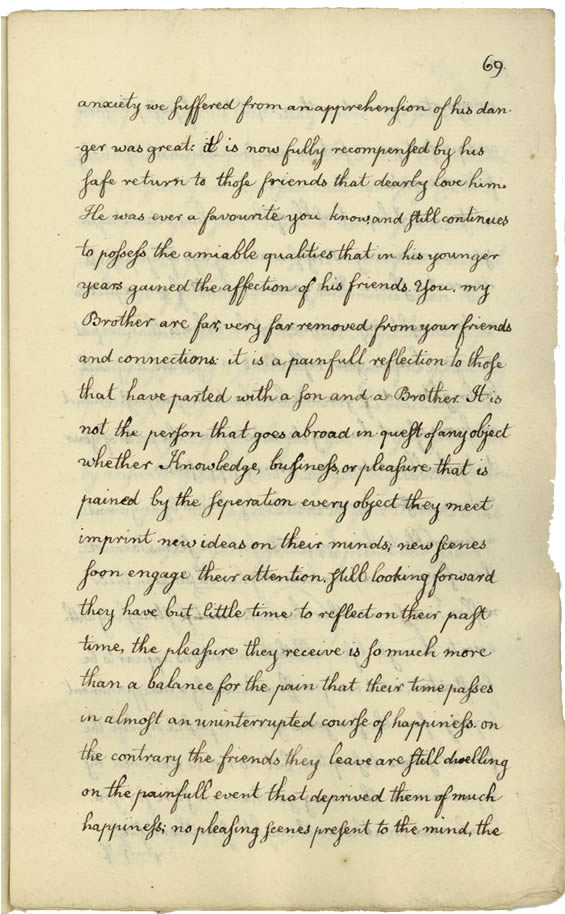 69.
anxiety we suffered from an apprehension of his dan-
-ger was great: it is now fully recompensed by his
safe return to those friends that dearly love him.
He was ever a favourite you know, and still continues
to possess the amiable qualities that in his younger
years gained the affection of his friends. You, my
Brother are far, very far removed from your friends
and connections: it is a painfull reflection to those
that have parted with a son and a Brother. It is
not the person that goes abroad in quest of any object
whether Knowledge, business, or pleasure that is
pained by the seperation every object they meet
imprint new ideas on their minds; new scenes
soon engage their attention, still looking forward
they have but little time to reflect on their past
time, the pleasure they receive is so much more
than a balance for the pain that their time passes
in almost an uninterrupted course of happiness. on
the contrary the friends they leave are still dwelling
on the painfull event that deprived them of much
happiness; no pleasing scenes present to the mind, the